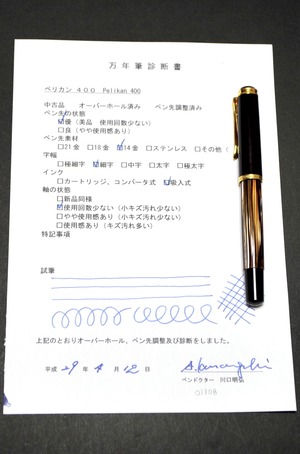 万年筆診断書
ペリカン 400 Pelikan 400
中古品 オーバーホール済み ペン先調整済み
ペン先の状態
☑優（美品 使用回数少ない）
□良（やや使用感あり）
ペン先素材
□21金 □18金 ☑14金 □ステンレス □その他（
字幅
□極細字 ☑細字 □中字 □太字 □極太字
インク
□カートリッジ、コンバータ式 ☑吸入式
軸の状態
□新品同様
☑使用回数少ない（小キズ汚れ少ない）
□やや使用感あり（小キズ汚れ少ない）
□使用感あり（キズ汚れ多い）
特記事項
試筆
上記のとおりオーバーホール、ペン先調整及び診断をしました。
平成 29 年 4 月 12 日
ペンドクター 川口明弘